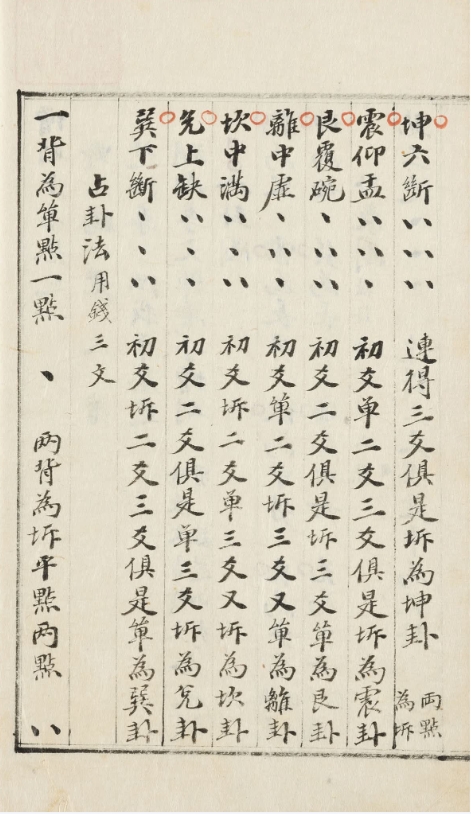 坤六斷 、、 、、 、、 連得三爻俱是坼為坤卦 兩點為坼
震仰盂 、、 、、 、 初爻单二爻三爻俱是坼為震卦
艮覆碗 、 、、 、、 初爻二爻俱是坼三爻单為艮卦
離中虛 、 、、 、 初爻单二爻坼三爻又单為離卦
坎中滿 、、 、 、、 初爻坼二爻单三爻又坼為坎卦
兊上缺 、、 、 、 初爻二爻俱是单三爻坼為兊卦
巽下斷 、 、 、、 初爻坼二爻三爻俱是单為巽卦
占卦法 用錢三文
一背為单點一點 、 两背為坼平點两點 、、